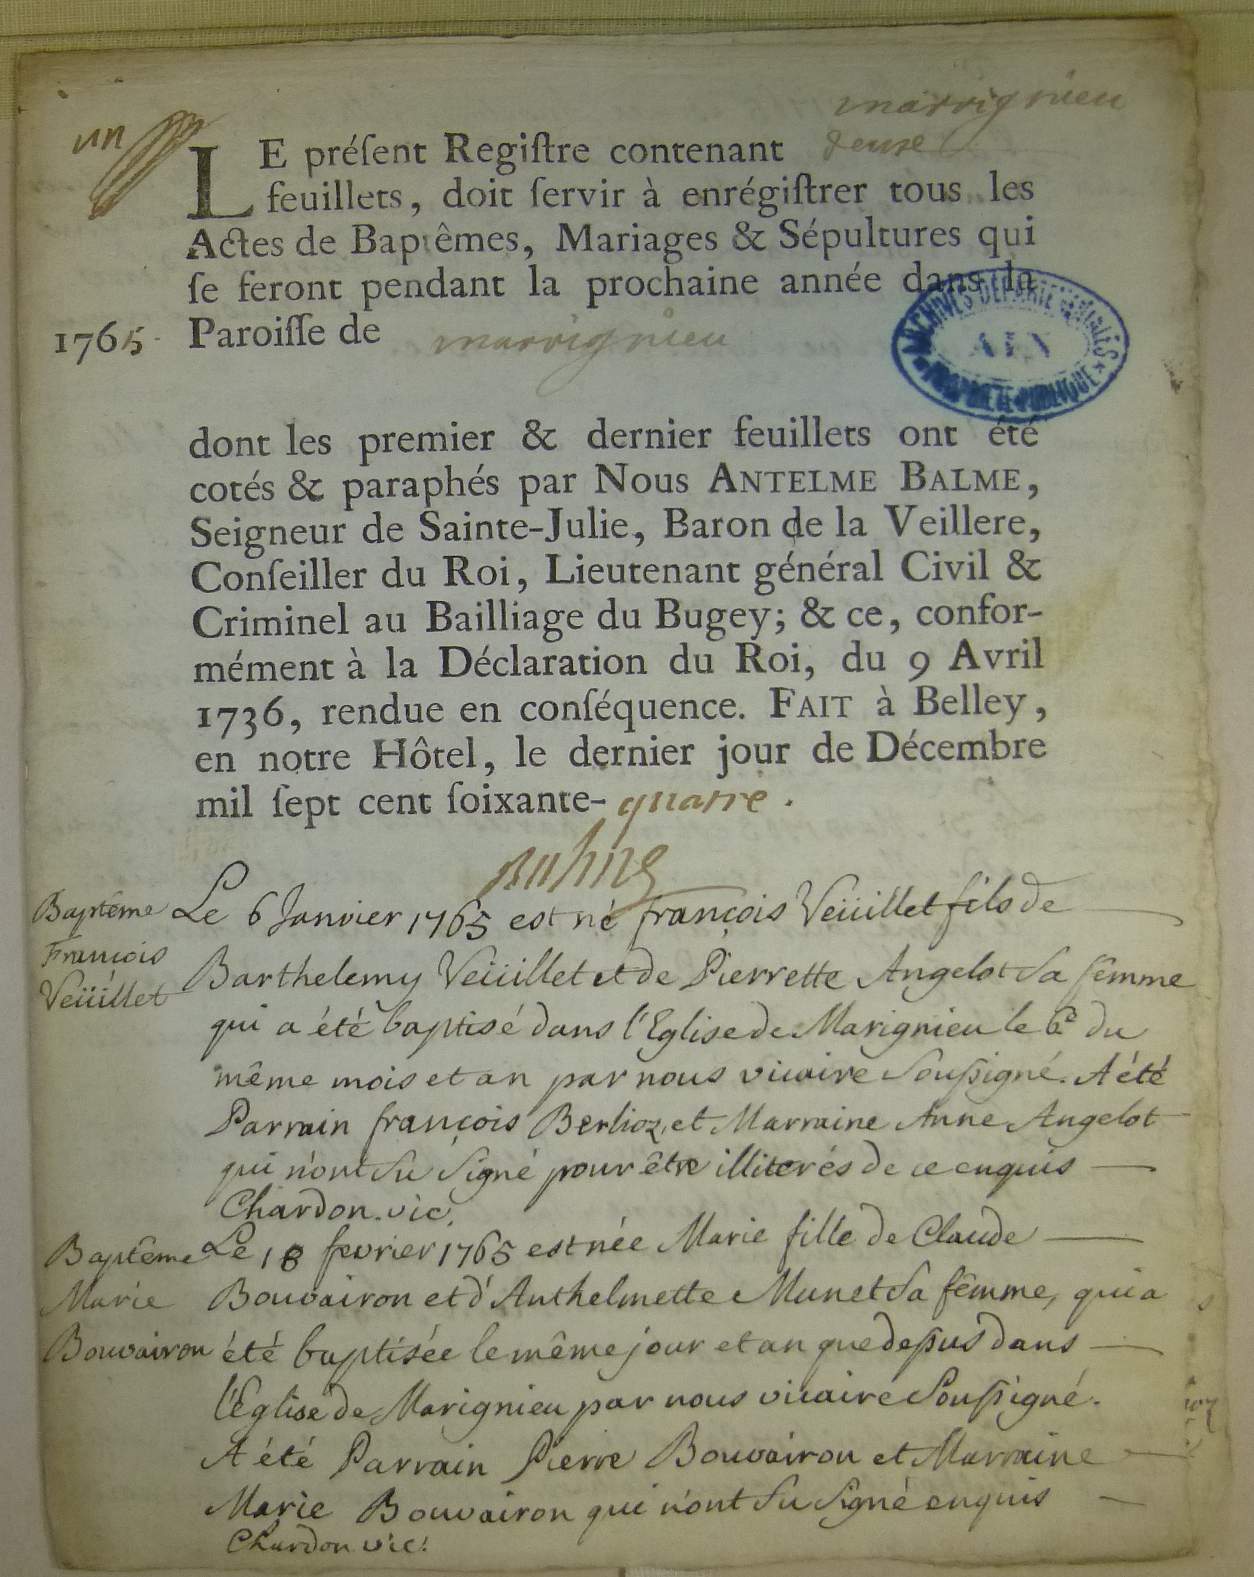 marrignieu
un
LE préſent Regiſtre contenant
feuillets, doit ſervir à enrégiſtrer tous les
Actes de Baptêmes, Mariages & Sépultures qui
ſe feront pendant la prochaine année dans la
1765 Paroiſſe de marrignieu
ARCHIVES DÉPARTEMENTALES
AIN
PROPRIÉTÉ PUBLIQUE
dont les premier & dernier feuillets ont été
cotés & paraphés par Nous ANTELME BALME,
Seigneur de Sainte-Julie, Baron de la Veillere,
Conſeiller du Roi, Lieutenant général Civil &
Criminel au Bailliage du Bugey; & ce, confor-
mément à la Déclaration du Roi, du 9 Avril
1736, rendue en conſéquence. FAIT à Belley,
en notre Hôtel, le dernier jour de Décembre
mil ſept cent ſoixante-quatre.
Balme
Baptême
François
Veüillet
Le 6 Janvier 1765 est né françois Veüillet fils de
Barthelemy Veüillet et de Pierrette Angelot Sa fêmme
qui a été baptisé dans l'Eglise de Marignieu le 6e du
même mois et an par nous vicaire Soussigné. A été
Parrain françois Berlioz, et Marraine Anne Angelot
qui n'ont Su Signé pour être illiterés de ce enquis
Chardon. vic.
Baptême
Marie
Bouvairon
Le 18 fevrier 1765 est née Marie fille de Claude
Bouvairon et d'Anthelmette Munet Sa fêmme, qui a
été baptisée le même jour et an que dessus dans
l'Eglise de Marignieu par nous vicaire Soussigné.
A été Parrain Pierre Bouvairon et Marraine
Marie Bouvairon qui n'ont Su Signé enquis
Chardon vic.